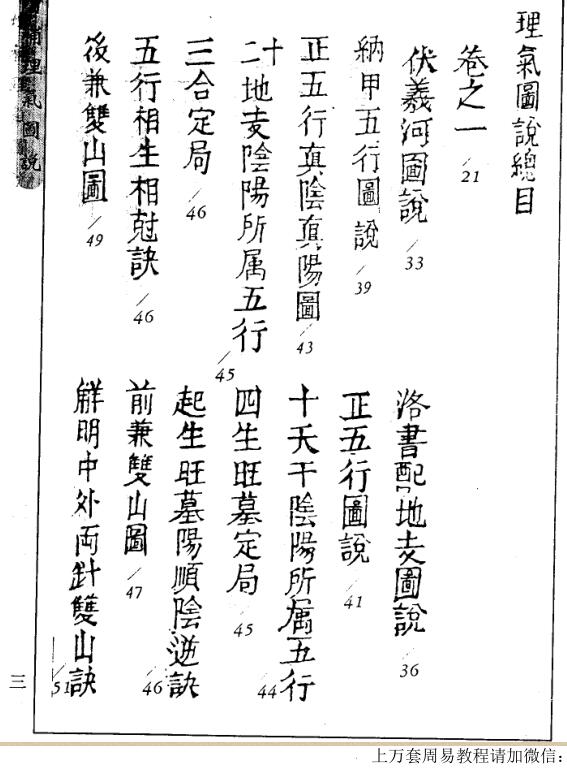 理氣圖說總目
卷之一 /21
伏羲河圖說 /33
洛書配地支圖說 /36
納甲五行圖說 /39
正五行圖說 /41
正五行真陰真陽圖 /43
十天干陰陽所属五行 /44
十二地支陰陽所属五行 /45
四生旺墓定局 /45
三合定局 /46
起生旺墓陽順陰逆訣 /46
五行相生相尅訣 /46
前兼雙山圖 /47
後兼雙山圖 /49
觧明中外両針雙山訣 /51
理氣圖說
三
上万套周易教程请加微信：